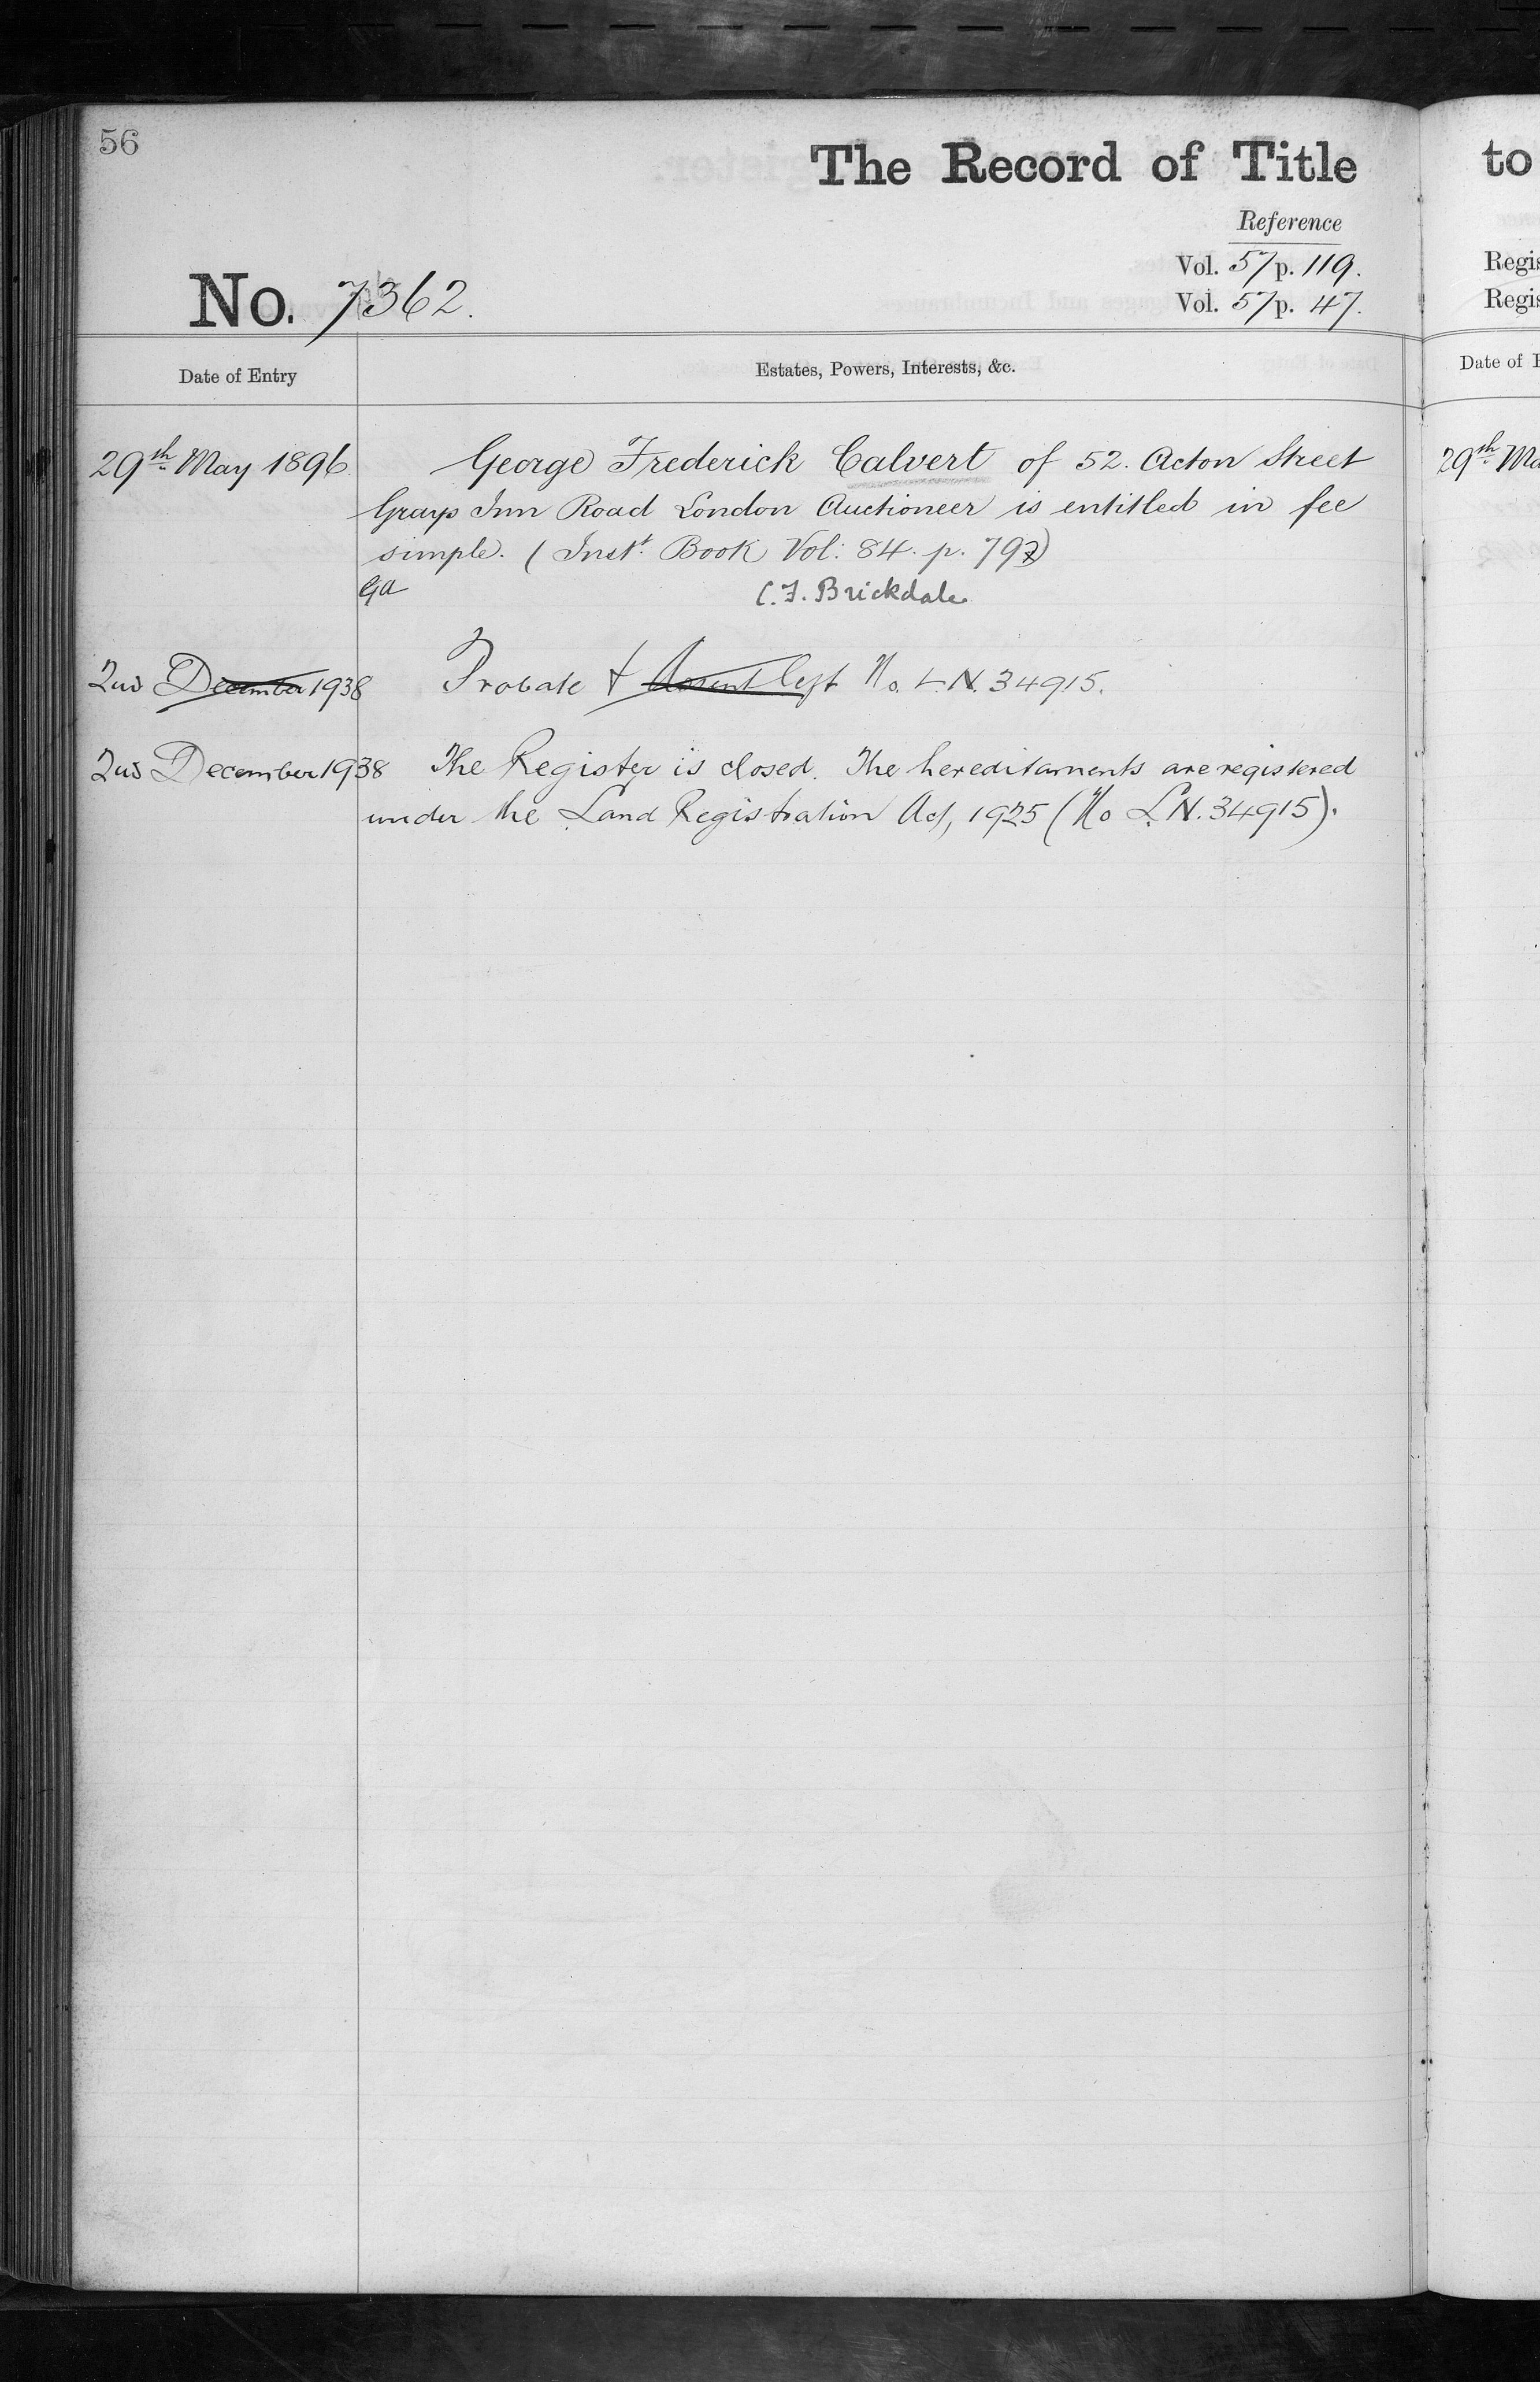 56
The Record of Title
to
Reference
Vol. 57 p. 119.
Vol. 57 p. 47.
No. 7362.
Regis
Regis
Date of Entry
Estates, Powers, Interests, &c.
Date of
29th May 1896.
George Frederick Calvert of 52. Acton Street
Grays Inn Road London Auctioneer is entitled in fee
simple. (Inst. Book Vol: 84. p. 797)
Ga
C. F. Brickdale
29th Ma
2nd December 1938
Probate & Assent left No. L.N. 34915.
2nd December 1938
The Register is closed. The hereditaments are registered
under the Land Registration Act, 1925 (No L.N. 34915).